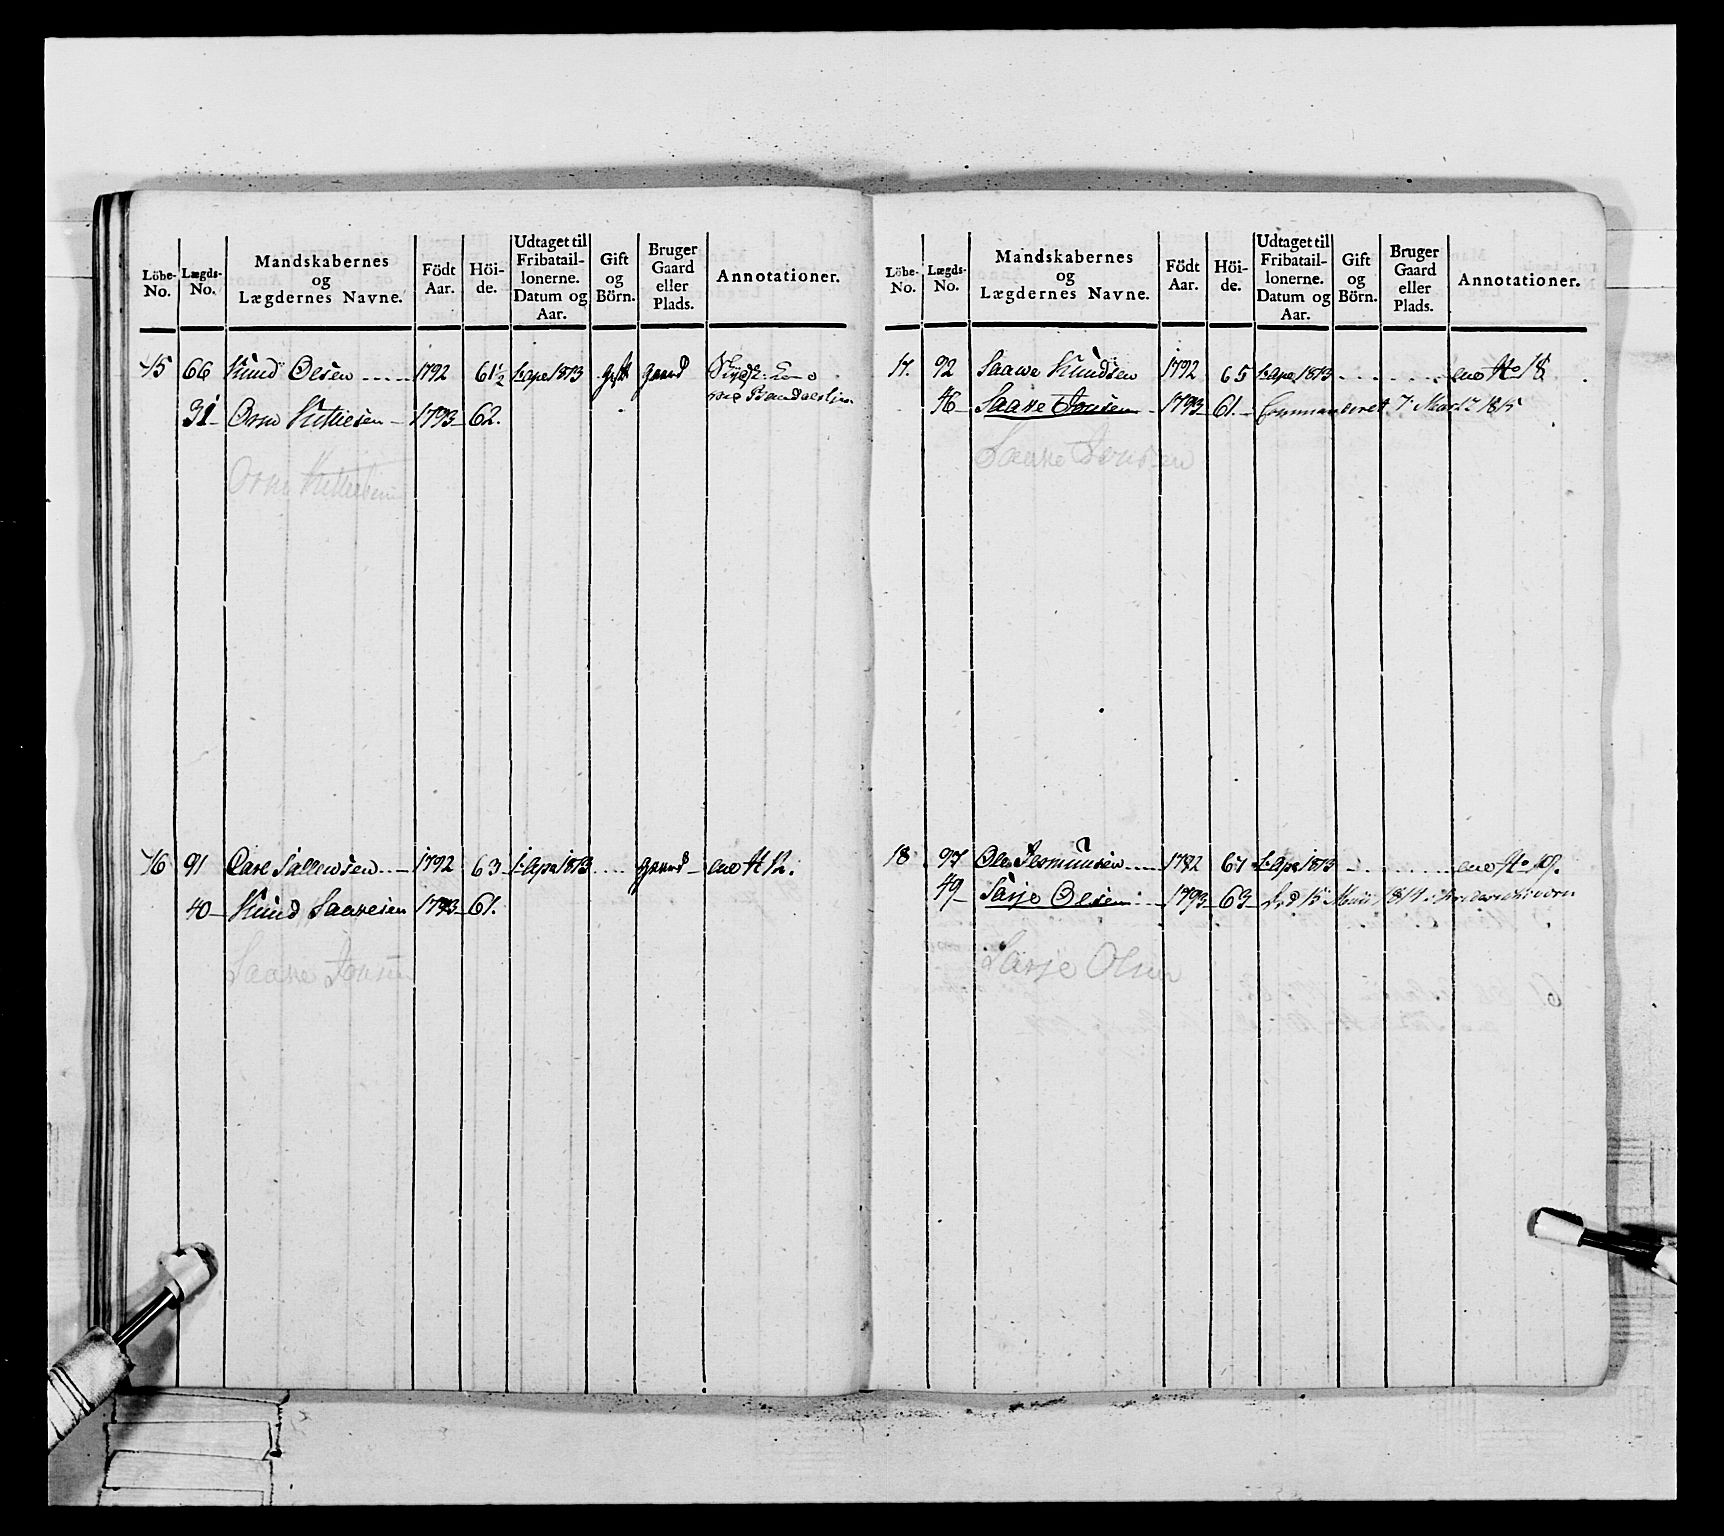 Löbe-No. Lægds-No. Mandskabernes og Lægdernes Navne. Födt Aar. Höi-de. Udtaget til Fribatail-lonerne. Datum og Aar. Gift og Börn. Bruger Gaard eller Plads. Annotationer.
15 66 Knud Olsen 1792 61½ 1. Apr 1813 gift gaard
31 Orm Kittelsen 1793 62.
Orm Kittelsen
16 91 Carl 1792 63 1. Apr 1813 gaard
40 Knud Saavesen 1793 61.
Saave Jonsen
Löbe-No. Lægds-No. Mandskabernes og Lægdernes Navne. Födt Aar. Höi-de. Udtaget til Fribatail-lonerne. Datum og Aar. Gift og Börn. Bruger Gaard eller Plads. Annotationer.
17. 92 Saave Knudsen 1792 65 1. Apr 1813 No 18.
46 Saave Jonsen 1793 61. Commanderet 7. Marts 1815
Saave Jonsen
18 97 Ole 1792 67 1. Apr 1813
49 Tarje Olsen 1793 63 15 1814
Tarje Olsen